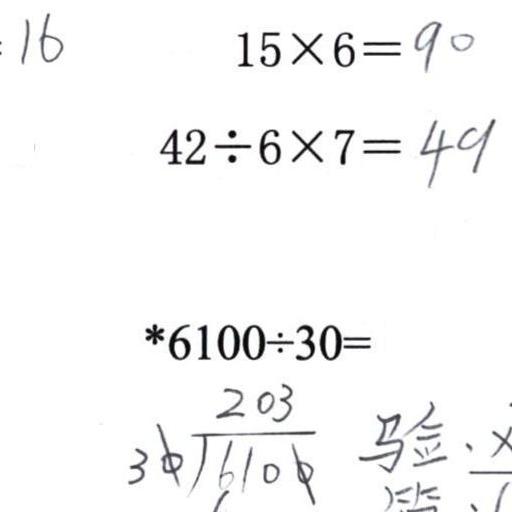 16 15×6=90
42÷6×7=49
*6100÷30=
203
30)6100 验